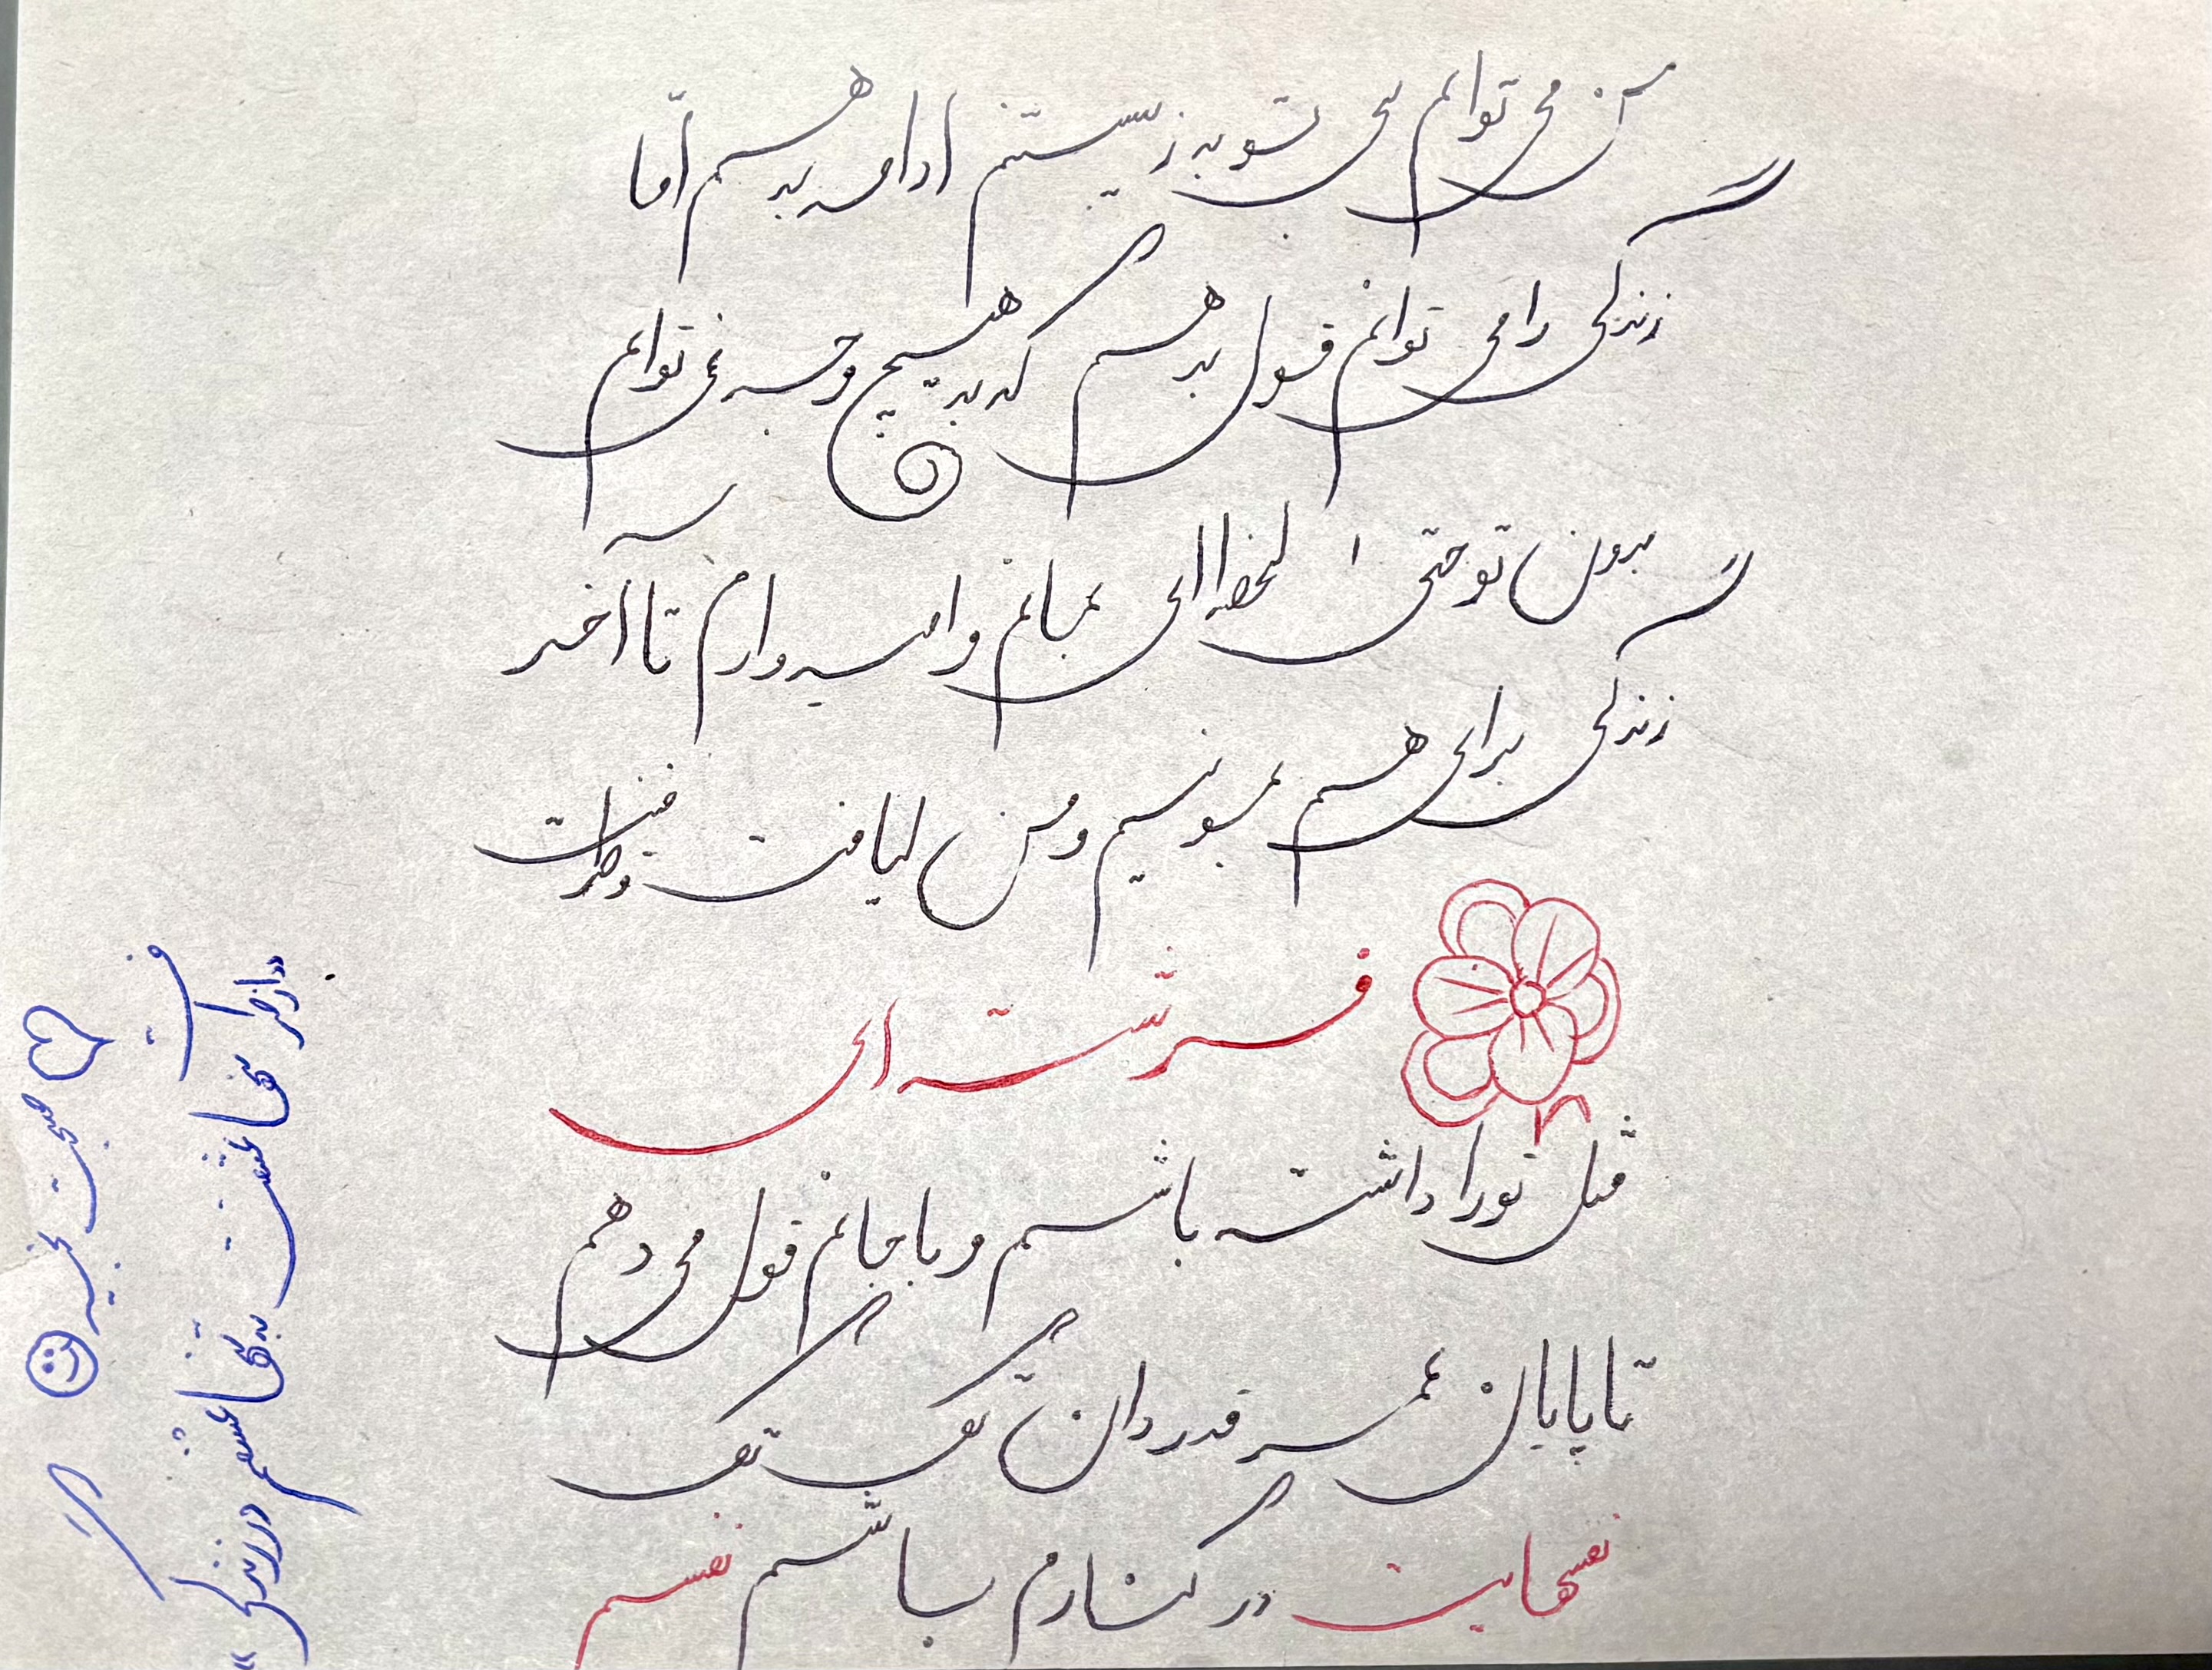 من می توانم بی تو به زیستنم ادامه بدهم امّا
زندگی را می توانم قول بدهم که به هیچ وجه نمی توانم
بدون تو حتی لحظه ای بمانم و امیدوارم تا آخر
زندگی برای هم بمونیم و من لیاقت و
فرشته ای
مثل تو را داشته باشم و با جانم قول می دهم
تا پایان عمر قدردان تک تک
نفسهایت در کنارم باشم نفسم
"از طرف تنها عشقت به تنها عشقم در زندگی"
صبحت بخیر